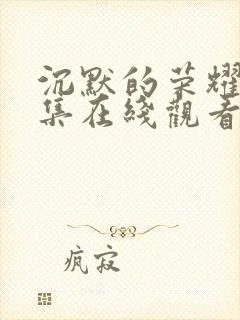 沉默的荣耀
集在綫觀看
疯寂